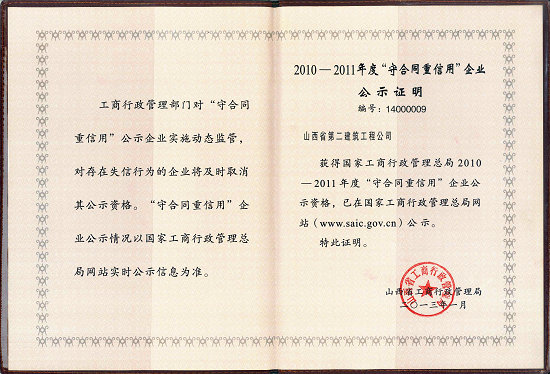 工商行政管理部门对“守合同
重信用”公示企业实施动态监管，
对存在失信行为的企业将及时取消
其公示资格。“守合同重信用”企
业公示情况以国家工商行政管理总
局网站实时公示信息为准。
2010—2011年度“守合同重信用”企业
公示证明
编号：14000009
山西省第二建筑工程公司
获得国家工商行政管理总局2010
—2011年度“守合同重信用”企业公
示资格，已在国家工商行政管理总局网
站（www.saic.gov.cn）公示。
特此证明。
山西省工商行政管理局
二〇一三年一月
山西省工商行政管理局